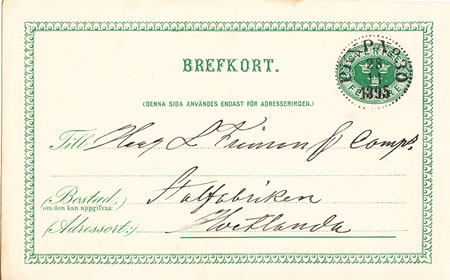 BREFKORT.
(DENNA SIDA ANVÄNDES ENDAST FÖR ADRESSERINGEN.)
FEM ÖRE
PKXP.Nº30
1895
Till: Herr L & Comp.
(Bostad,
om den kan uppgifvas:)
(Adressort:) Hvetlanda